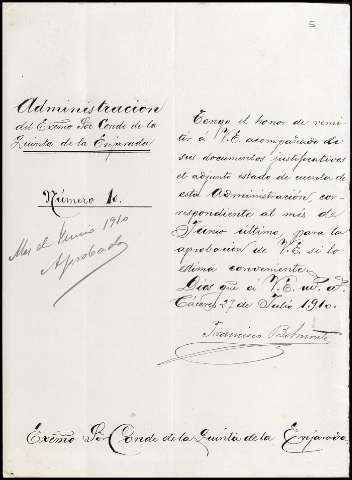 Administracion
del Excmo Sor Conde de la
Quinta de la Enjarada
Número 1o.
Mes de Junio 1910
Aprobado
Tengo el honor de remi-
tir á V.E. acompañado de
sus documentos justificativos
el adjunto estado de cuenta de
esta Administración, cor-
respondiente al més de
Junio ultimo, para la
aprobacion de V.E. si lo
estima conveniente.
Dios gue á V.E. m. a.
Cáceres 27 de Julio 1910.
Francisco Belmonte
Excmo Sor Conde de la Quinta de la Enjarada